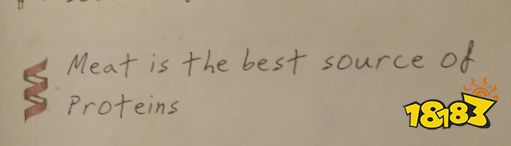 Meat is the best source of
Proteins
18183